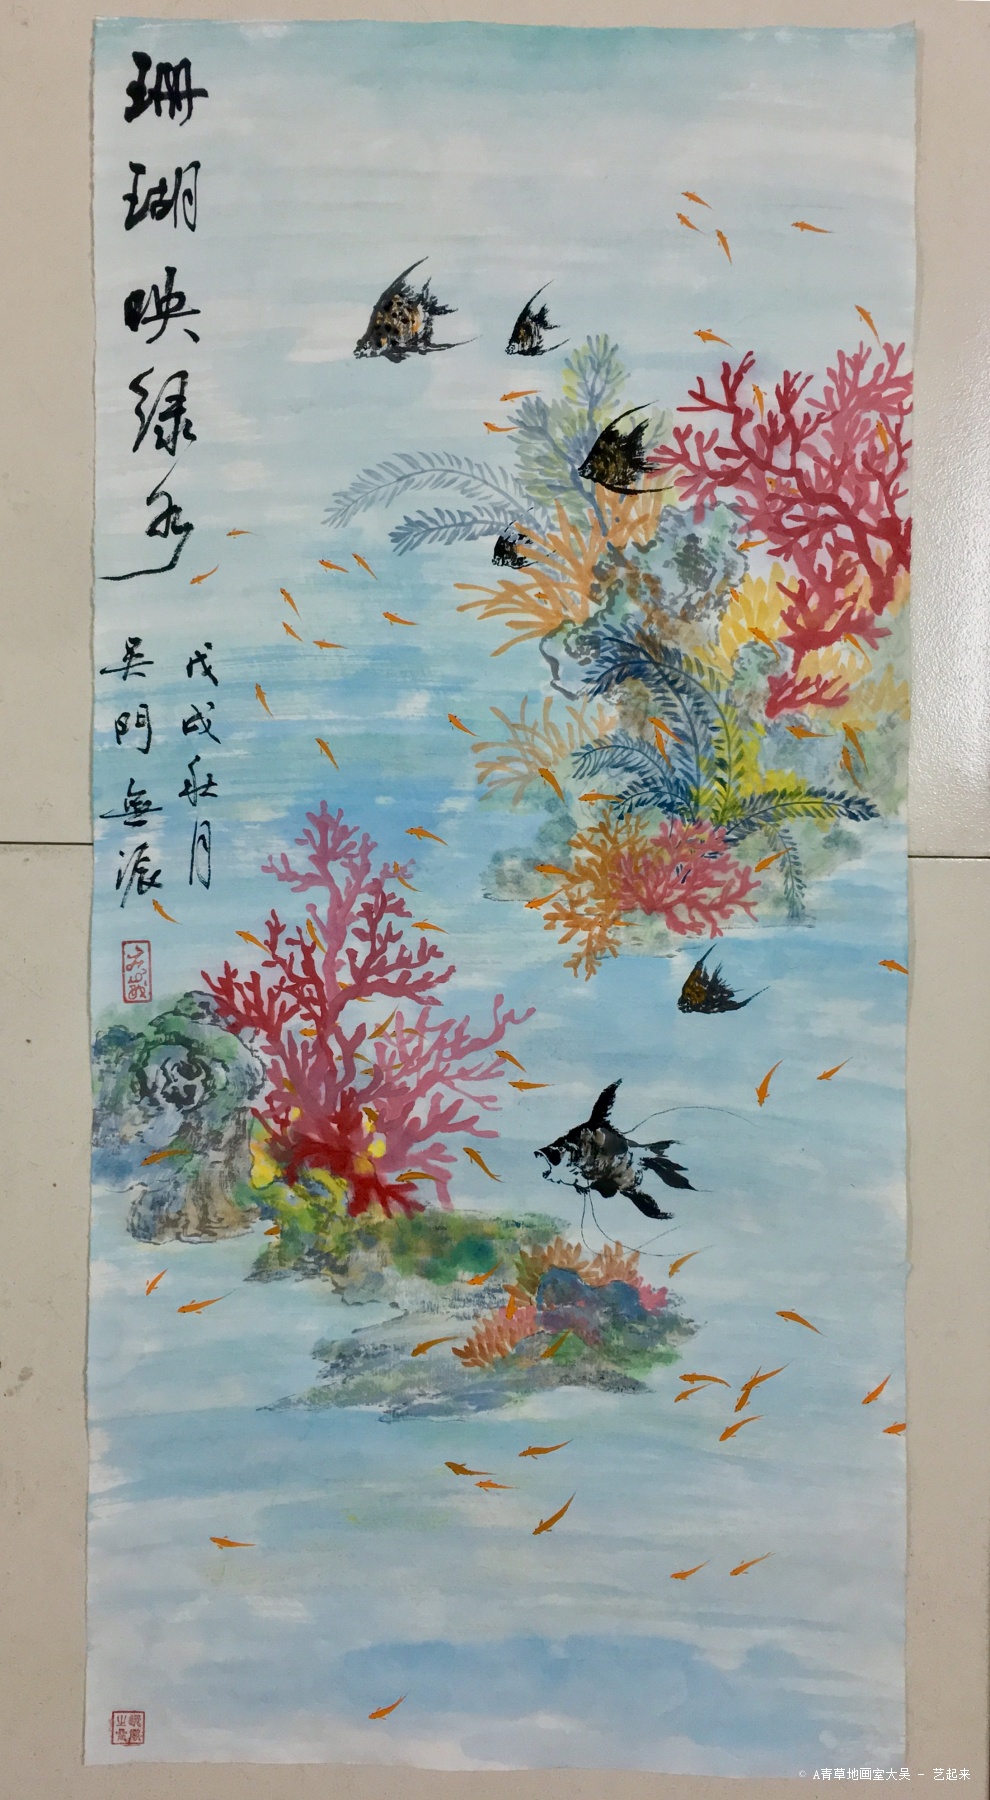 珊瑚映绿水
戊戌秋月
吴門無派
© A青草地画室大吴 - 艺起来